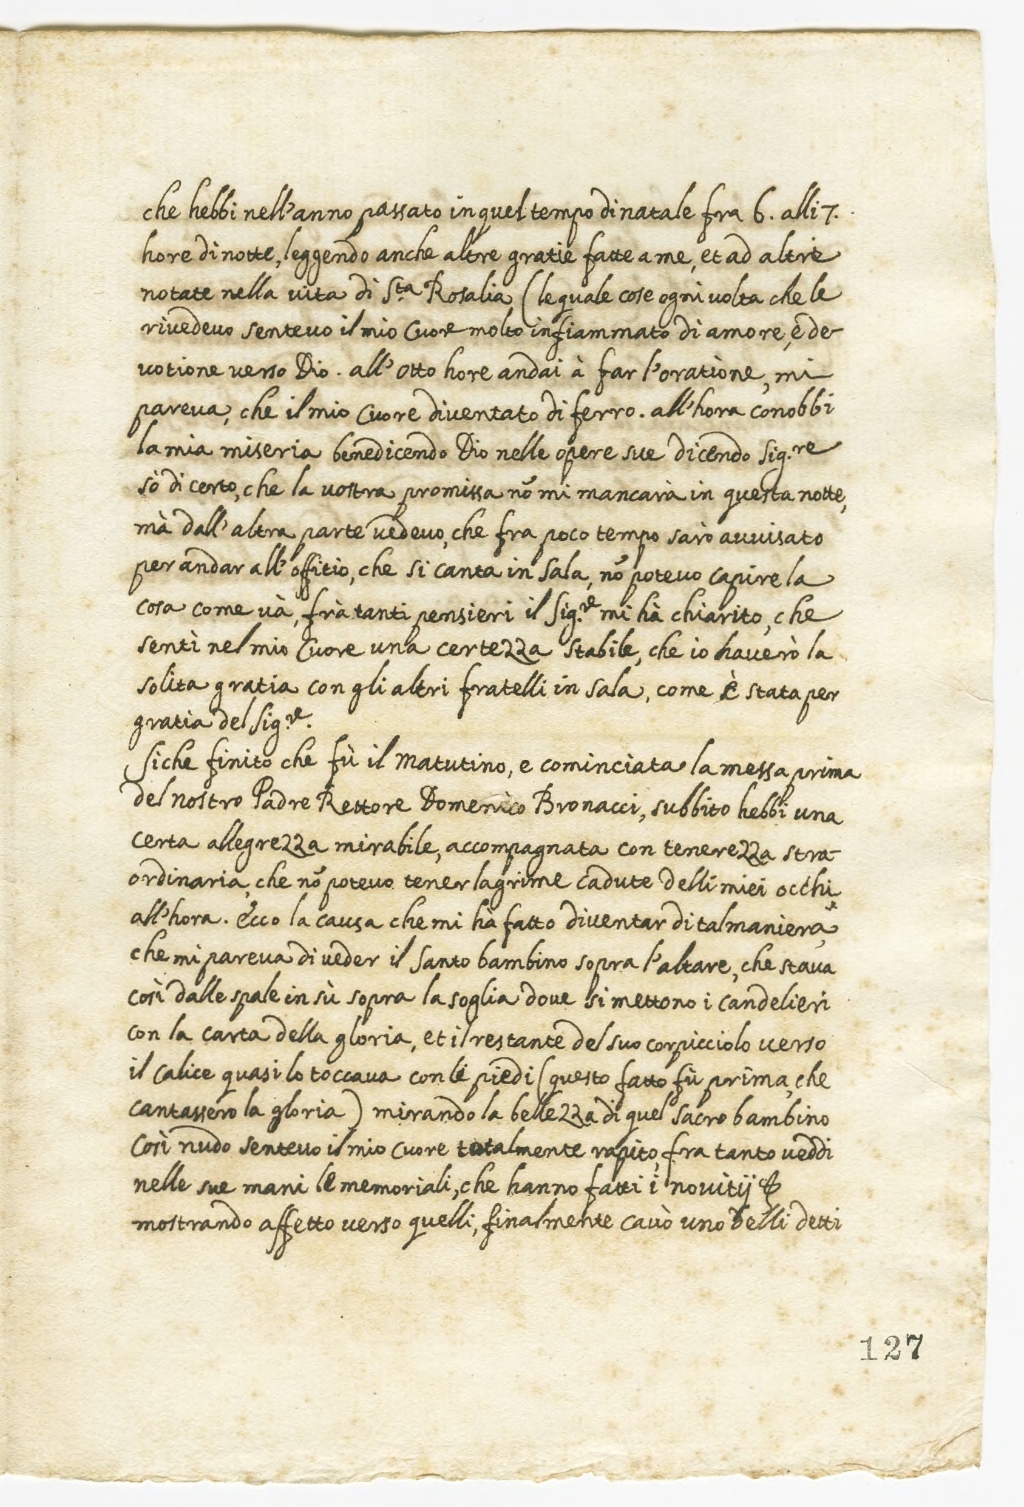 che hebbi nell'anno passato in quel tempo di natale fra 6. alli 7.
hore di notte, leggendo anche altre gratie fatte a me, et ad altri
notate nella vita di S.ta Rosalia (le quale cose ogni volta che le
rivedevo sentevo il mio Cuore molto infiammato di amore, e de-
votione verso Dio. all'otto hore andai à far l'oratione, mi
pareva, che il mio Cuore diventato di ferro. all'hora conobbi
la mia miseria benedicendo Dio nelle opere sue dicendo Sig.re
sò di certo, che la vostra promissa nõ mi mancarà in questa notte,
mà dall'altra parte vedevo, che fra poco tempo sarò avvisato
per andar all'offitio, che si canta in sala, nõ potevo capire la
cosa come và, frà tanti pensieri il Sig.re mi hà chiarito, che
sentì nel mio Cuore una certezza stabile, che io haverò la
solita gratia con gli altri fratelli in sala, come è stata per
gratia del Sig.re.
Siche finito che fù il Matutino, e cominciata la messa prima
del nostro Padre Rettore Domenico Bronacci, subbito hebbi una
certa allegrezza mirabile, accompagnata con tenerezza stra-
ordinaria, che nõ potevo tener lagrime cadute delli miei occhi
all'hora. Ecco la causa che mi hà fatto diventar di tal maniera,
che mi pareva di veder il Santo bambino sopra l'altare, che stava
così dalle spale in sù sopra la soglia dove si mettono i candelieri
con la carta della gloria, et il restante del suo corpicciolo verso
il Calice quasi lo toccava con li piedi (questo fatto fù prima, che
cantassero la gloria) mirando la bellezza di quel sacro bambino
Così nudo sentevo il mio Cuore totalmente rapito, fra tanto veddi
nelle sue mani le memoriali, che hanno fatti i novitij &
mostrando affetto verso quelli, finalmente cavò uno delli detti
127